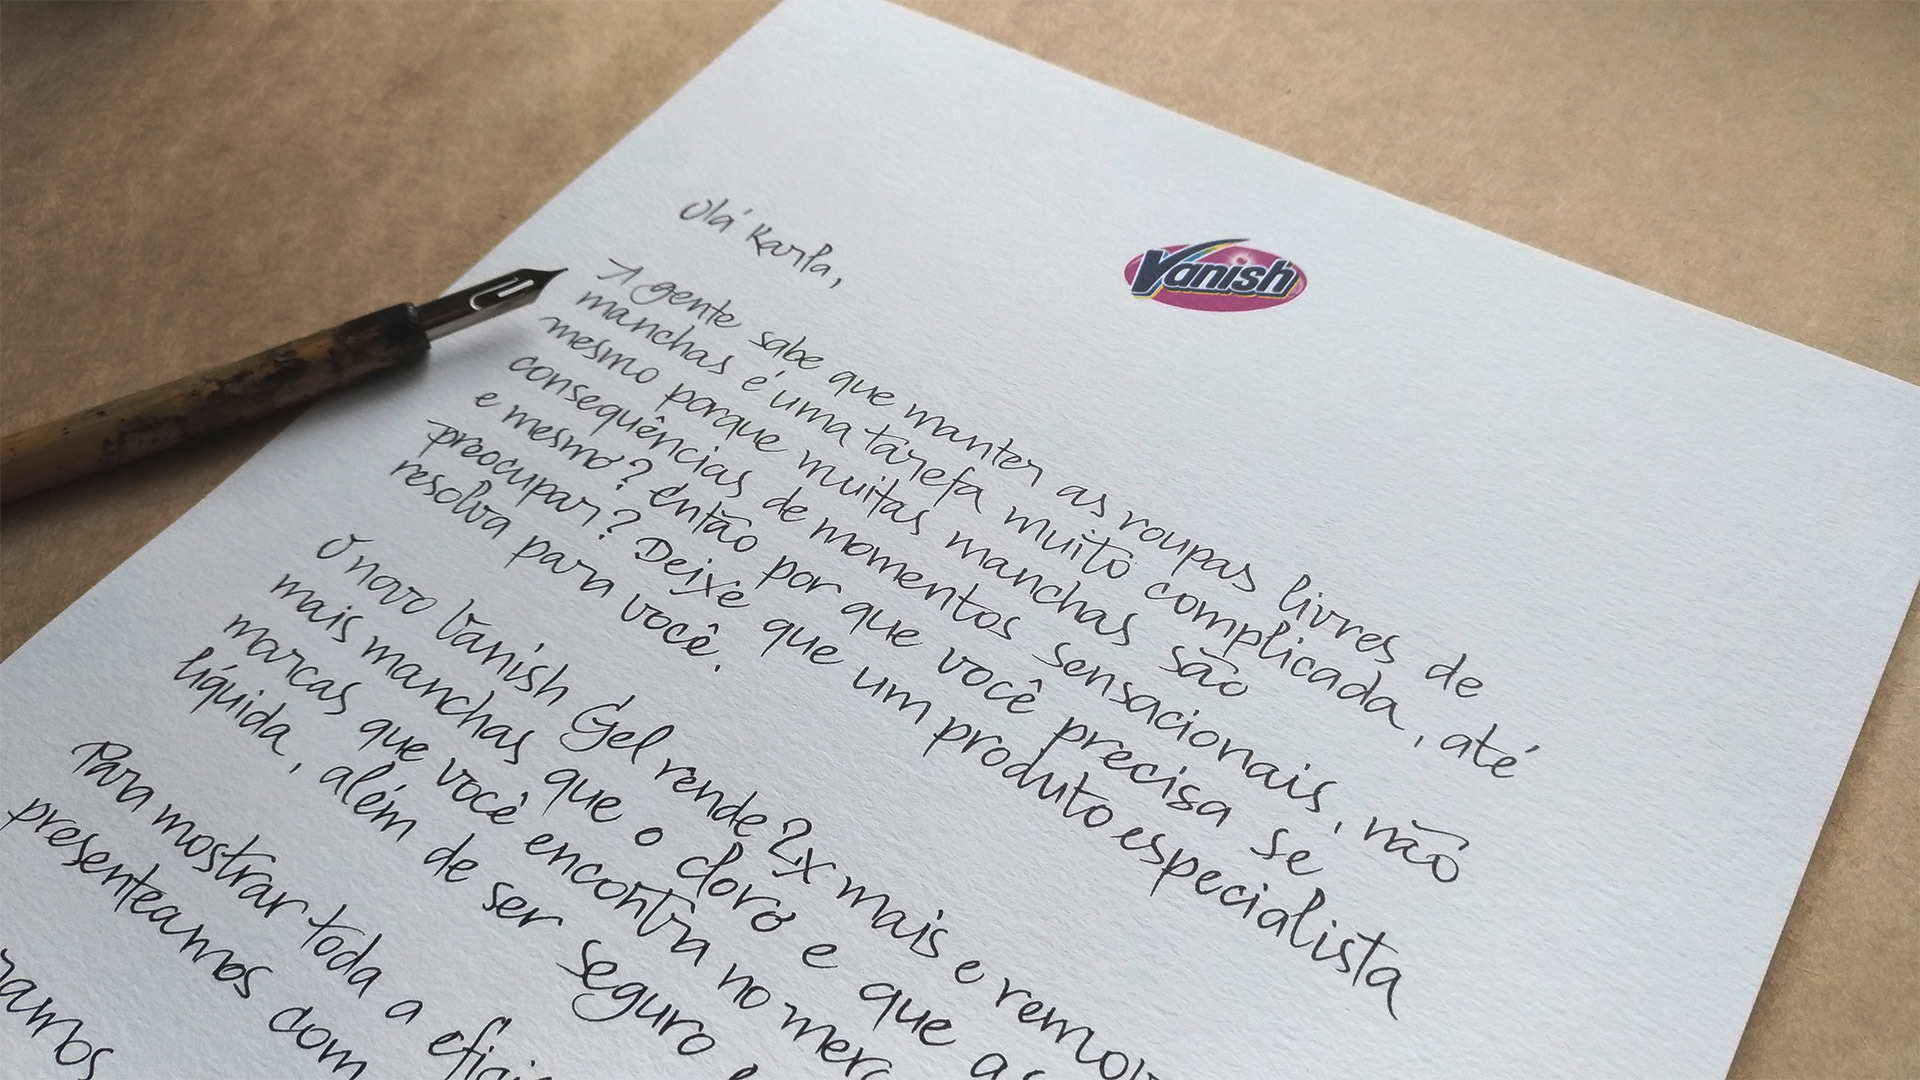 Vanish
Olá Karla,
A gente sabe que manter as roupas livres de
manchas é uma tarefa muito complicada, até
mesmo porque muitas manchas são
consequências de momentos sensacionais, não
e mesmo? Então por que você precisa se
preocupar? Deixe que um produto especialista
resolva para você.
O novo Vanish Gel rende 2x mais e
mais manchas que o cloro e que as
marcas que você encontra no
líquida, além de ser seguro
Para mostrar toda a
presenteamos com